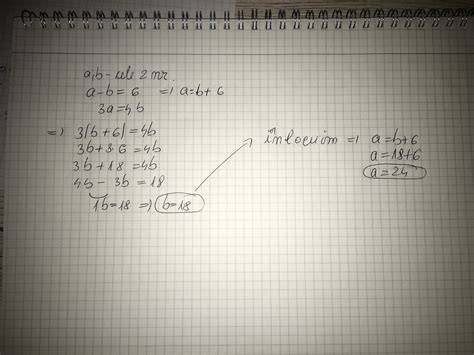 a,b - cele 2 nr.
a-b = 6 => a=b+6
3a=4b
=> 3(b+6)=4b
3b+3·6=4b
3b+18=4b
4b-3b=18
1b=18 => b=18
înlocuim => a=b+6
a=18+6
a=24